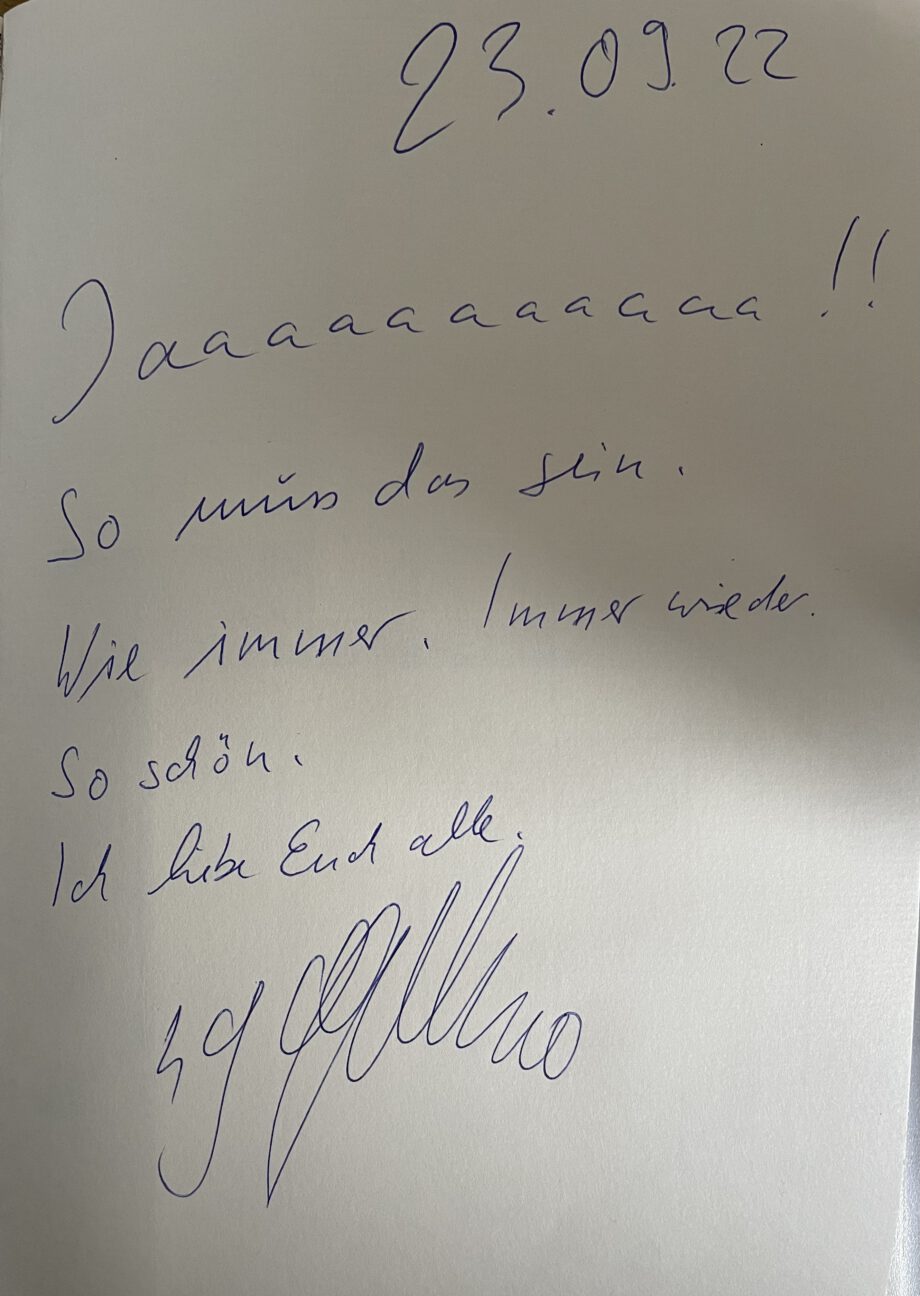 23.09.22
Jaaaaaaaaaaaa!!
So muss das sein.
Wie immer. Immer wieder.
So schön.
Ich liebe Euch alle.